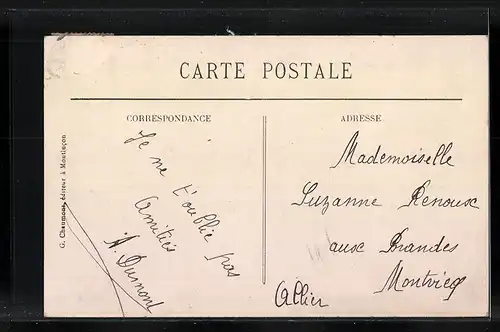 CARTE POSTALE
CORRESPONDANCE
ADRESSE
G. Chaumont, éditeur à Montluçon
Je ne t'oublie pas
Amitiés
A. Dumont
Mademoiselle
Suzanne Renoux
aux Brandes
Montvicq
Allier